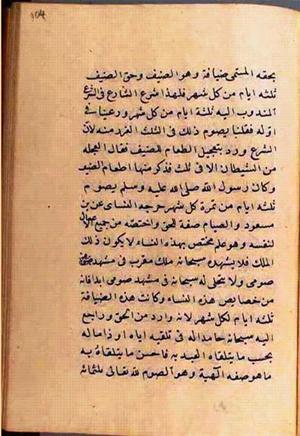 ١٥٤
بحقه المسمى ضيافة وهو الضيف وحق الضيف
ثلثه ايام من كل شهر فلهذا شرع الشارع في الشرع
المندوب اليه ثلثة ايام من كل شهر ورغبنا في
اوله فقلنا يصوم ذلك في الثلث الغرر منه لان
الشرع ورد بتعجيل الطعام للضيف فقال العجلة
من الشيطان الا في ثلث فذكر منها اطعام الضيف
وكان رسول الله صلى الله عليه وسلم يصوم
ثلثه ايام من غرة كل شهر خرجه النساى عن بن
مسعود والصيام صفة للحق واختصه من جميع الاعمال
لنفسه وهو عمل مختص بهذه النشاء لا يكون ذلك
الملك فلا يشهده سبحانه ملك مقرب في مشهد
صومى ولا يتجلى له سبحانه في مشهد صومى ابدا فانه
من خصايص هذه النشاء وكانت هذه الضيافة
ثلثه ايام لكل شهر لانه وارد من الحق وراجع
اليه سبحانه حامدا له في تلقيه اياه او ذاما له
بحسب ما يتلقاه العبد به فاحسن ما يتلقاه به
ما هو صفه الهية وهو الصوم لله تعالى ثلثمائة